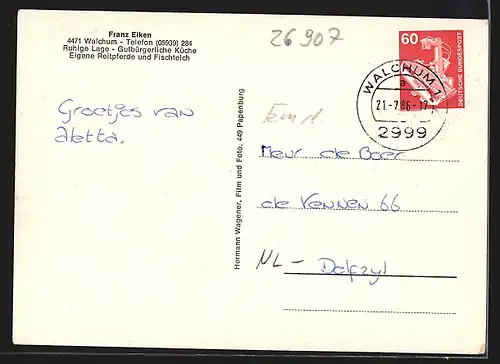 Franz Eiken
4471 Walchum - Telefon (05939) 284
Ruhige Lage - Gutbürgerliche Küche
Eigene Reitpferde und Fischteich
26907
60
DEUTSCHE BUNDESPOST
WALCHUM 1
a
21.-7.86-17
2999
Groetjes van
aletta.
Hermann Wagener, Film und Foto, 449 Papenburg
Meur de Boer
de Vennen 66
NL - Delfzyl